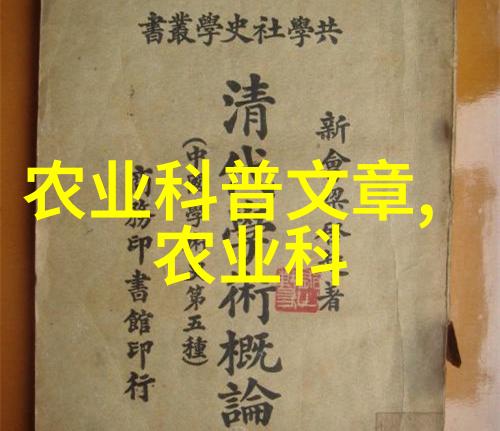 共學社史學叢書
新會梁著
清代學術概論
(中學第五種)
商務印書館印行
农业科普文章,
农业科